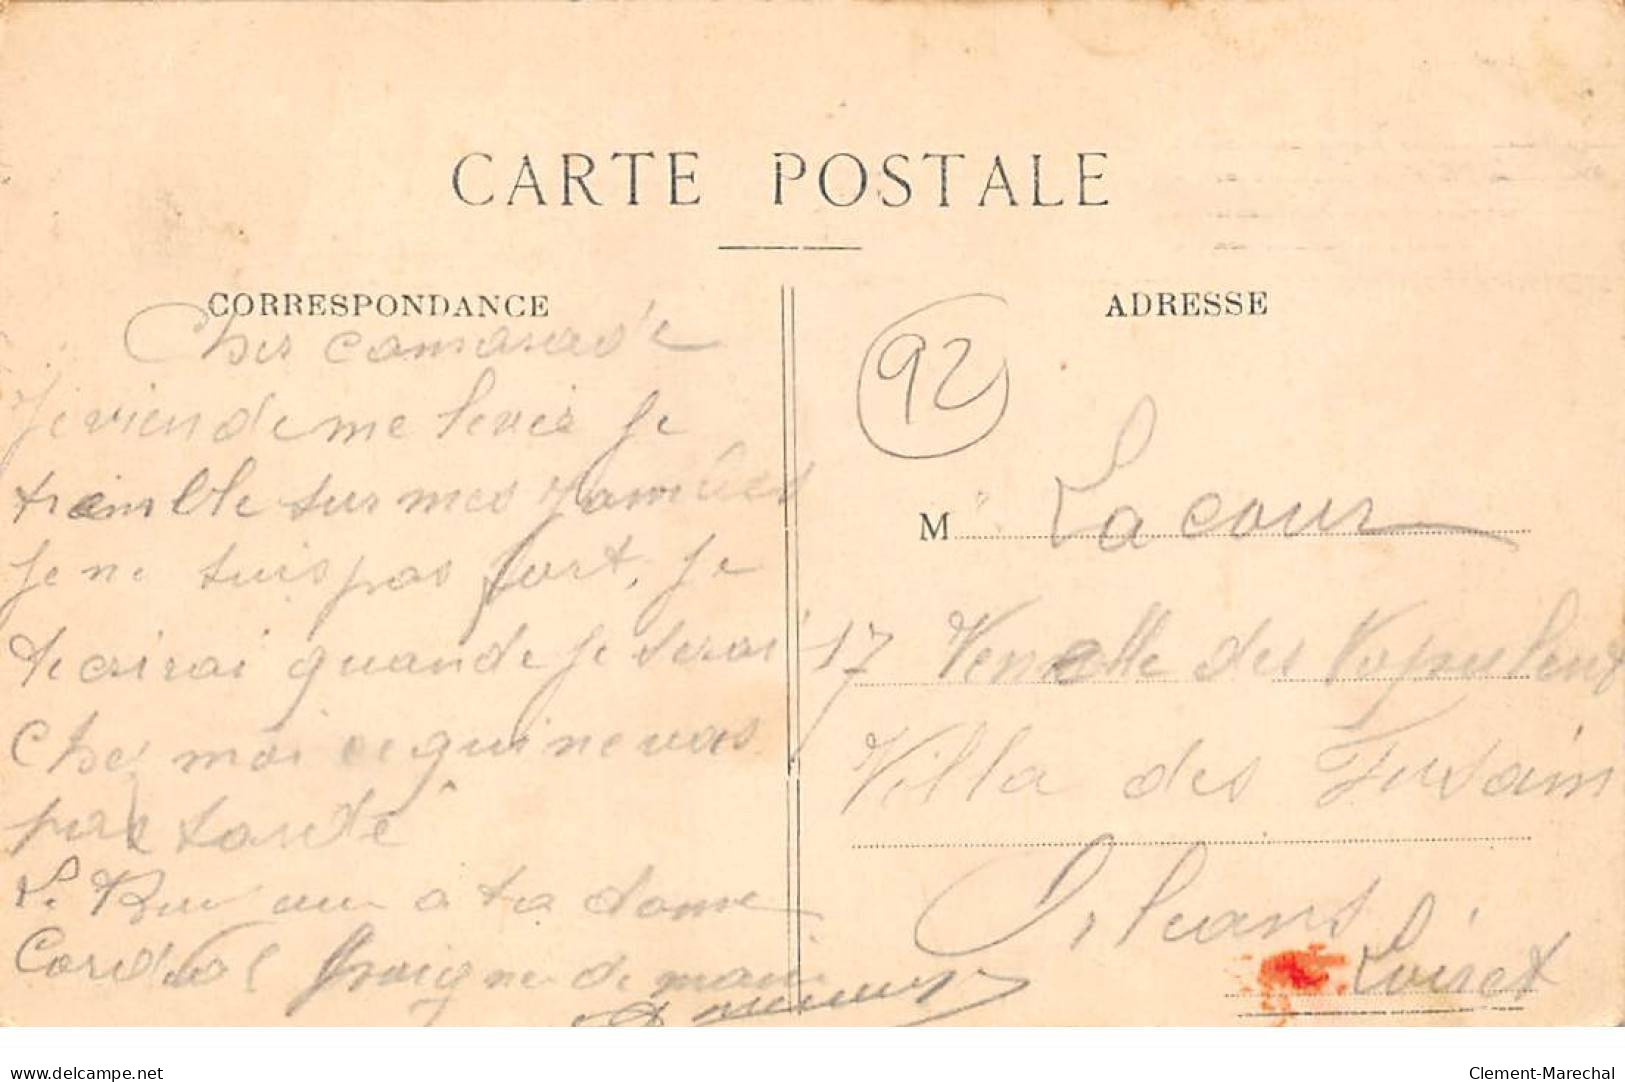 CARTE POSTALE
CORRESPONDANCE
Cher camarade
Je vien de me lever je
tremble sur mes jambes
je ne suis pas fort, je
tecrirai quande je serai
chez moi ce qui ne vas
pas tardé
a ta dame
Cordial poigne de main
ADRESSE
92
M Lacour
17 Venelle des
Villa des Fusain
Orleans
Loiret
www.delcampe.net
Clement-Marechal